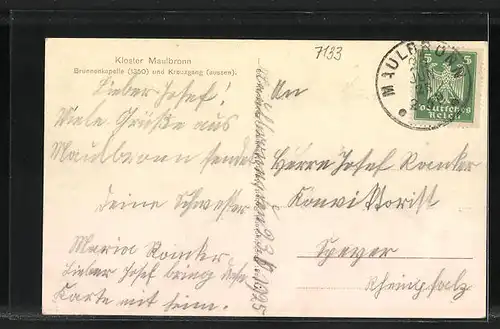 Kloster Maulbronn
Brunnenkapelle (1350) und Kreuzgang (aussen).
7133
MAULBRONN
5 5
Deutsches
Reich
Lieber Josef!
Viele Grüße aus
Maulbronn sendet
deine Schwester
Maria
Lieber Josef bring
Karte mit heim.
An
Herrn Josef
Konviktorist
Speyer
Rheinpfalz